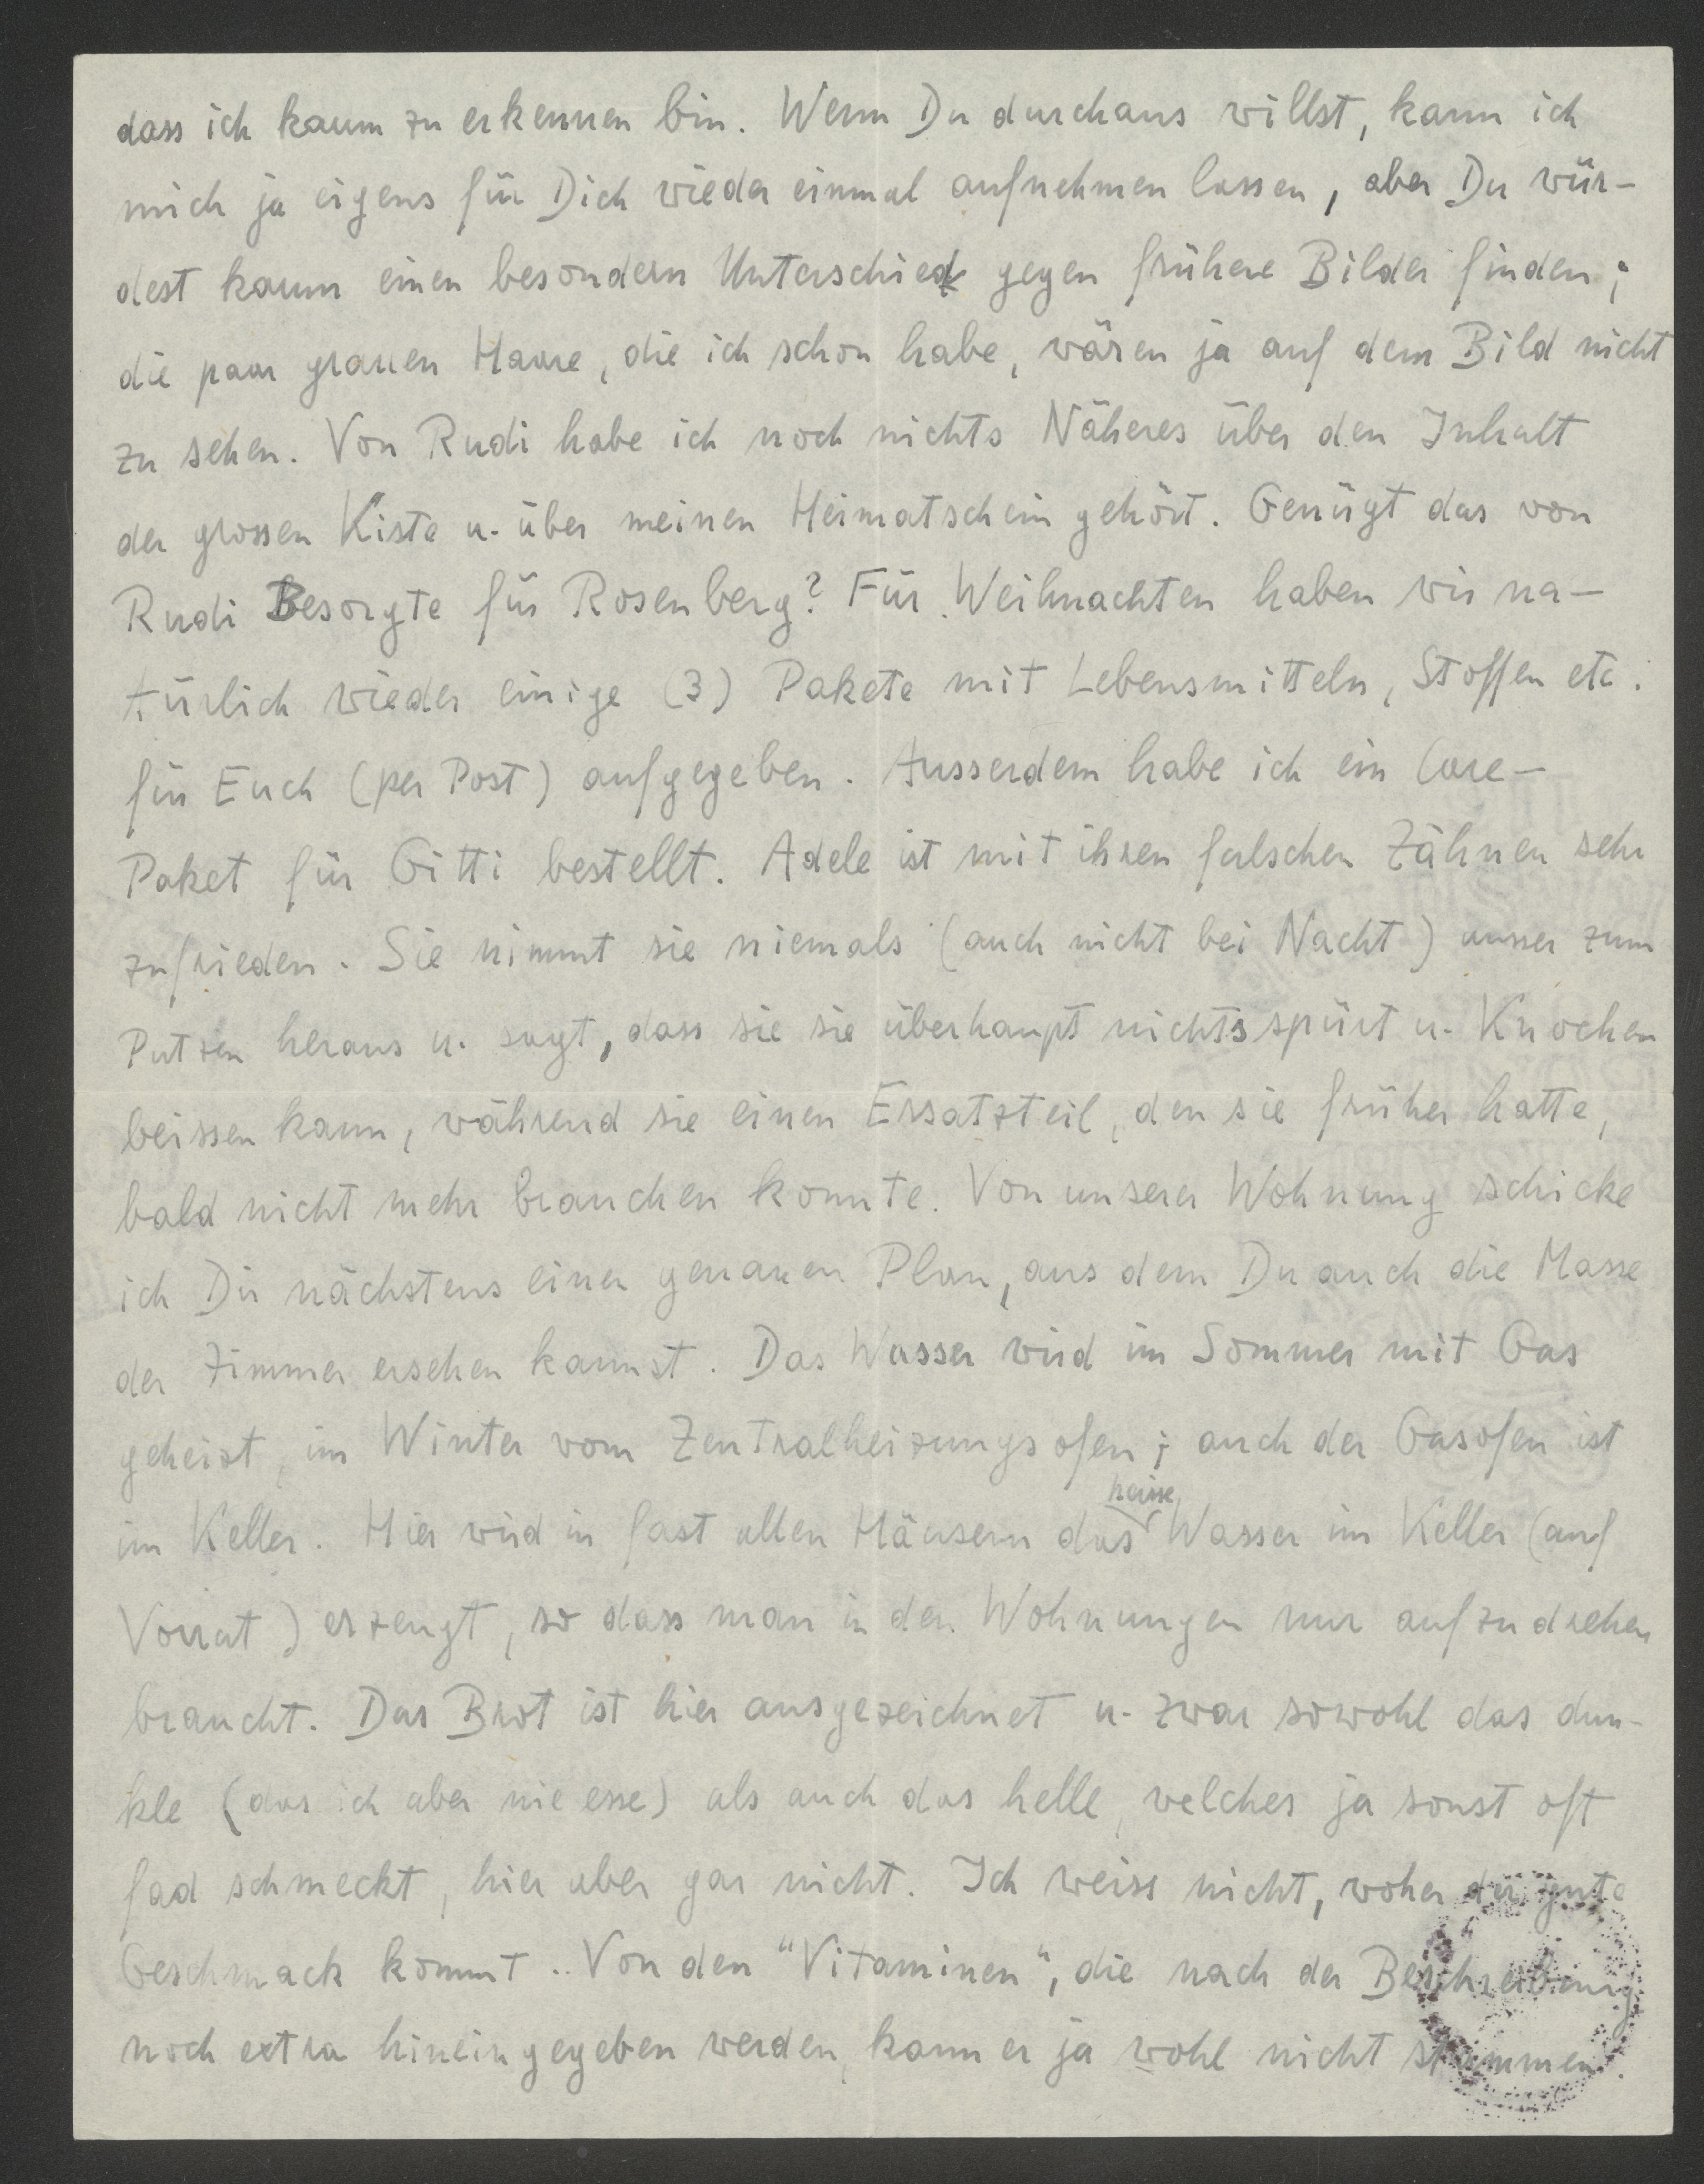 dass ich kaum zu erkennen bin. Wenn Du durchaus willst, kann ich
mich ja eigens für Dich wieder einmal aufnehmen lassen, aber Du wür-
dest kaum einen besondern Unterschied gegen frühere Bilder finden;
die paar grauen Haare, die ich schon habe, wären ja auf dem Bild nicht
zu sehen. Von Rudi habe ich noch nichts Näheres über den Inhalt
der grossen Kiste u. über meinen Heimatschein gehört. Genügt das von
Rudi Besorgte für Rosenberg? Für Weihnachten haben wir na-
türlich wieder einige (3) Pakete mit Lebensmitteln, Stoffen etc.
für Euch (per Post) aufgegeben. Ausserdem habe ich ein Care-
Paket für Gitti bestellt. Adele ist mit ihren falschen Zähnen sehr
zufrieden. Sie nimmt sie niemals (auch nicht bei Nacht) ausser zum
Putzen heraus u. sagt, dass sie sie überhaupt nichts spürt u. Knochen
beissen kann, während sie einen Ersatzteil, den sie früher hatte,
bald nicht mehr brauchen konnte. Von unserer Wohnung schicke
ich Dir nächstens einen genauen Plan, aus dem Du auch die Masse
der Zimmer ersehen kannst. Das Wasser wird im Sommer mit Gas
geheizt, im Winter vom Zentralheizungsofen; auch der Gasofen ist
im Keller. Hier wird in fast allen Häusern das heisse Wasser im Keller (auf
Vorrat) erzeugt, so dass man in den Wohnungen nur aufzudrehen
braucht. Das Brot ist hier ausgezeichnet u. zwar sowohl das dun-
kle (das ich aber nie esse) als auch das helle, welches ja sonst oft
fad schmeckt, hier aber gar nicht. Ich weiss nicht, woher der gute
Geschmack kommt. Von den "Vitaminen", die nach der Beschreibung
noch extra hineingegeben werden, kann er ja wohl nicht stammen.